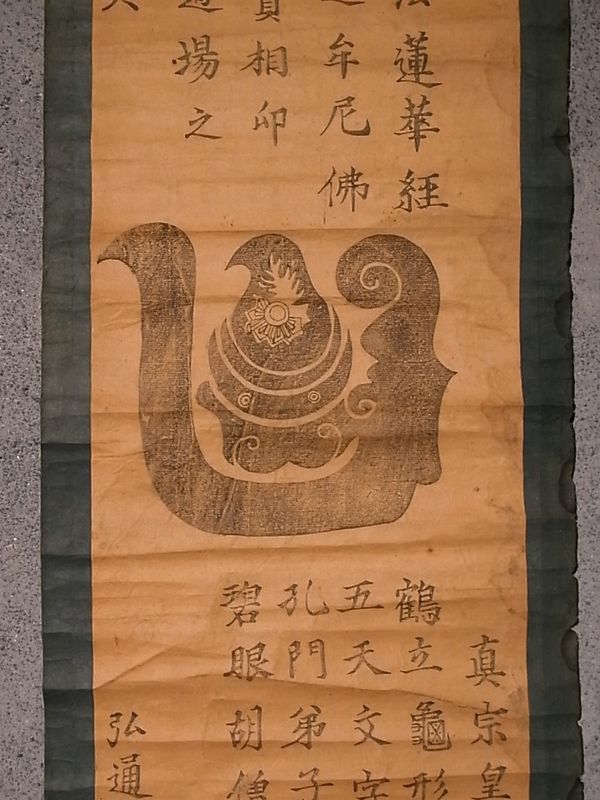 法蓮華經
牟尼佛
相印
場之
真宗皇
鶴立龜形
五天文字
孔門弟子
碧眼胡僧
弘通